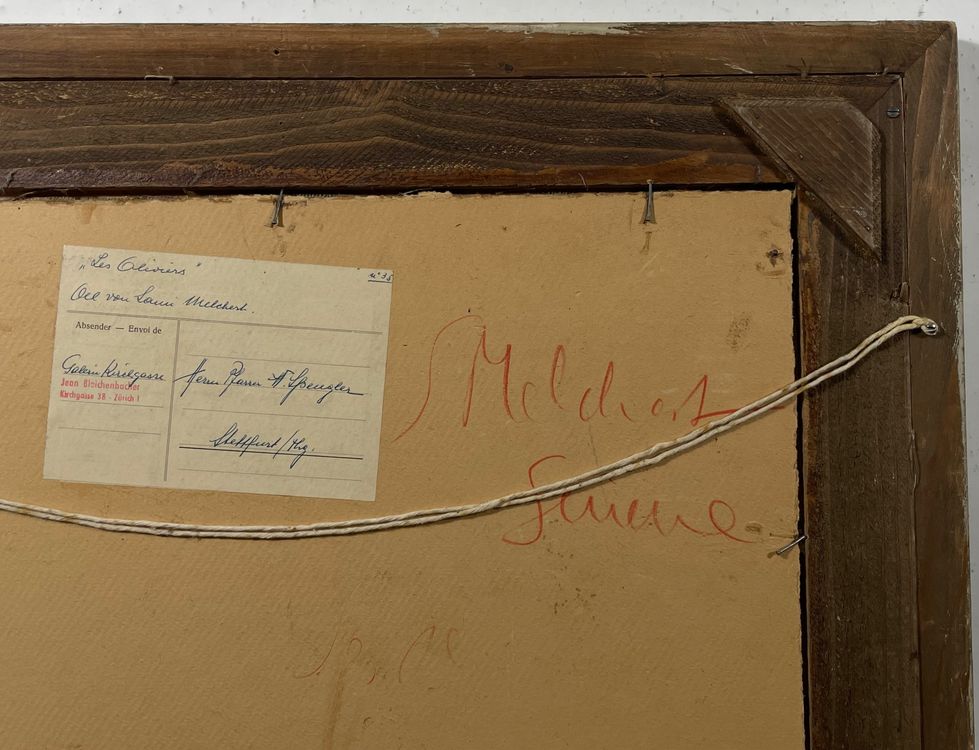 „Les Oliviers"
n° 35
Oel von Sami Melchert.
Absender — Envoi de
Galerie Kirchgasse
Jean Bleichenbacher
Kirchgasse 38 - Zürich 1
Herrn Pfarrer A. Spengler
Stettfurt/Thg.
S. Melchert